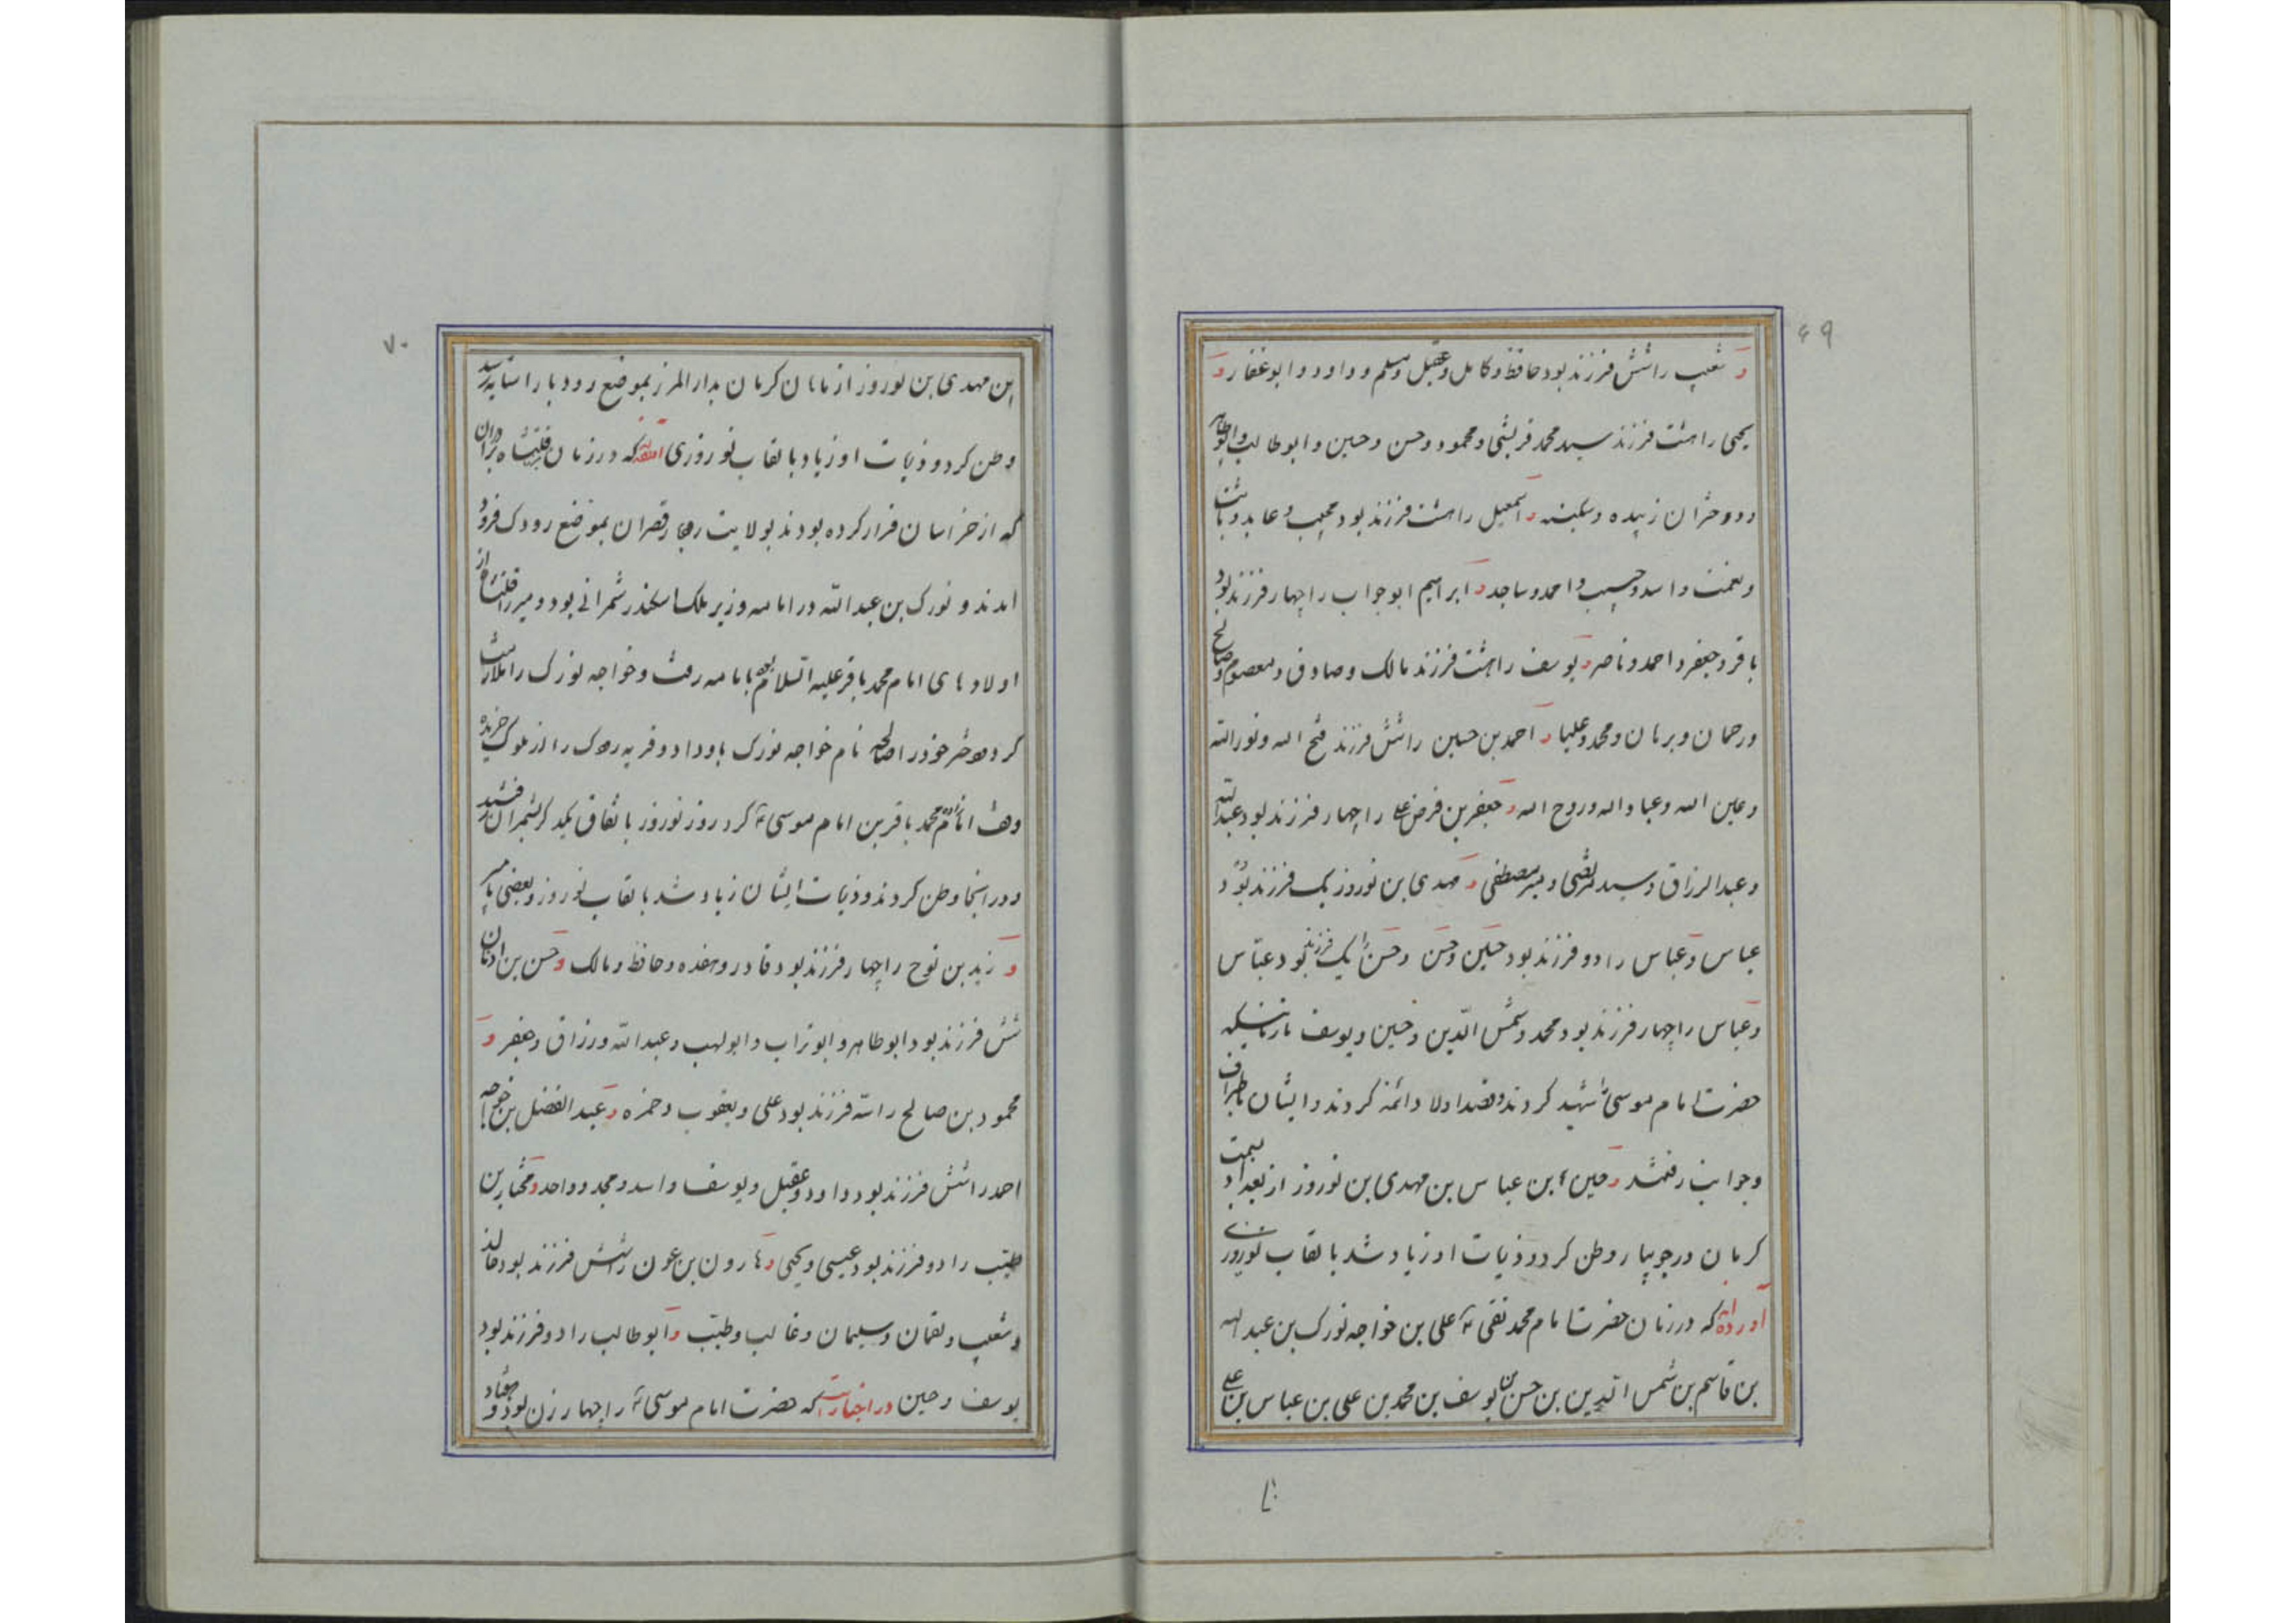 ۶۹
و شعیب را شش فرزند بود حافظ و کامل و عقیل و مسلم و داود و ابوغفار و
یحیی را هشت فرزند سید محمد قریشی و محمود و حسن و حسین و ابوطالب و ابوطاهر
و دو دختران زبیده و سکینه و اسمعیل را هشت فرزند بود محبب و عابد و ثابت
و نعمت و اسد و حسیب و احمد و ساجد و ابراهیم ابو جواب را چهار فرزند بود
باقر و جعفر و احمد و ناصر و یوسف را هشت فرزند مالک و صادق و معصوم و صالح
و رحمان و برمان و محمد و علیا و احمد بن حسین را شش فرزند فتح الله و نورالله
و عین الله و عباد الله و روح الله و جعفر بن فرضعلی را چهار فرزند بود عبدالله
و عبدالرزاق و سید مرتضی و میر مصطفی و مهدی بن نوروز یک فرزند بود
عباس و عباس را دو فرزند بود حسین و حسن و حسن را یک فرزند بود عباس
و عباس را چهار فرزند بود محمد و شمس الدین و حسین و یوسف تا زمانیکه
حضرت امام موسی را شهید کردند و قصد اولاد ائمه کردند و ایشان باطراف
و جوانب رفتند و حسین بن عباس بن مهدی بن نوروز از بغداد بسمت
کرمان در جوبپار وطن کرد و ذیات او زیاد شد بالقاب نوروزی
آورده اند که در زمان حضرت امام محمد نقی ع علی بن خواجه نورک بن عبد الله
بن قاسم بن شمس الدین بن حسن بن یوسف بن محمد بن علی بن عباس بن علی
۷۰
بن مهدی بن نوروز از ماهان کرمان بدار المرز بموضع رودبار استابه رسید
وطن کرد و ذیات او زیاد بالقاب نوروزی که در زمان برادران
که از خراسان فرار کرده بودند بولایت قصران بموضع رودک فرود
امدند و نورک بن عبدالله در امامه وزیر ملک اسکندر شمرانی بود و میر از
اولادهای امام محمد باقر علیه السلام بود بامامه رفت و خواجه نورک را ملازمت
کرد دختر خود را صالحه نام خواجه نورک باو داد و قریه رودک را از ملوک خریده
وقف امام زاده محمد باقر بن امام موسی ع کرد روز نوروز باتفاق یکدیگر بشمران رفتند
و در انجا وطن کردند و ذیات ایشان زیاد شد بالقاب نوروز و بعضی با میر
و زید بن نوح را چهار فرزند بود قادر و هفده و حافظ و مالک و حسن بن
شش فرزند بود ابوطاهر و ابوتراب و ابولهب و عبدالله و رزاق و جعفر و
محمود بن صالح را سه فرزند بود علی و یعقوب و حمزه و عبدالفضل بن خوجه
احمد را شش فرزند بود داود و عقیل و یوسف و اسد و مجد و واحد و مختار بن
طیب را دو فرزند بود عیسی و یحیی و هارون بن عون را شش فرزند بود خالد
و شعیب و لقمان و سلیمان و غالب و طیب و ابوطالب را دو فرزند بود
یوسف و حسین در اخبار است که حضرت امام موسی ع را چهار زن بود و هفتاد